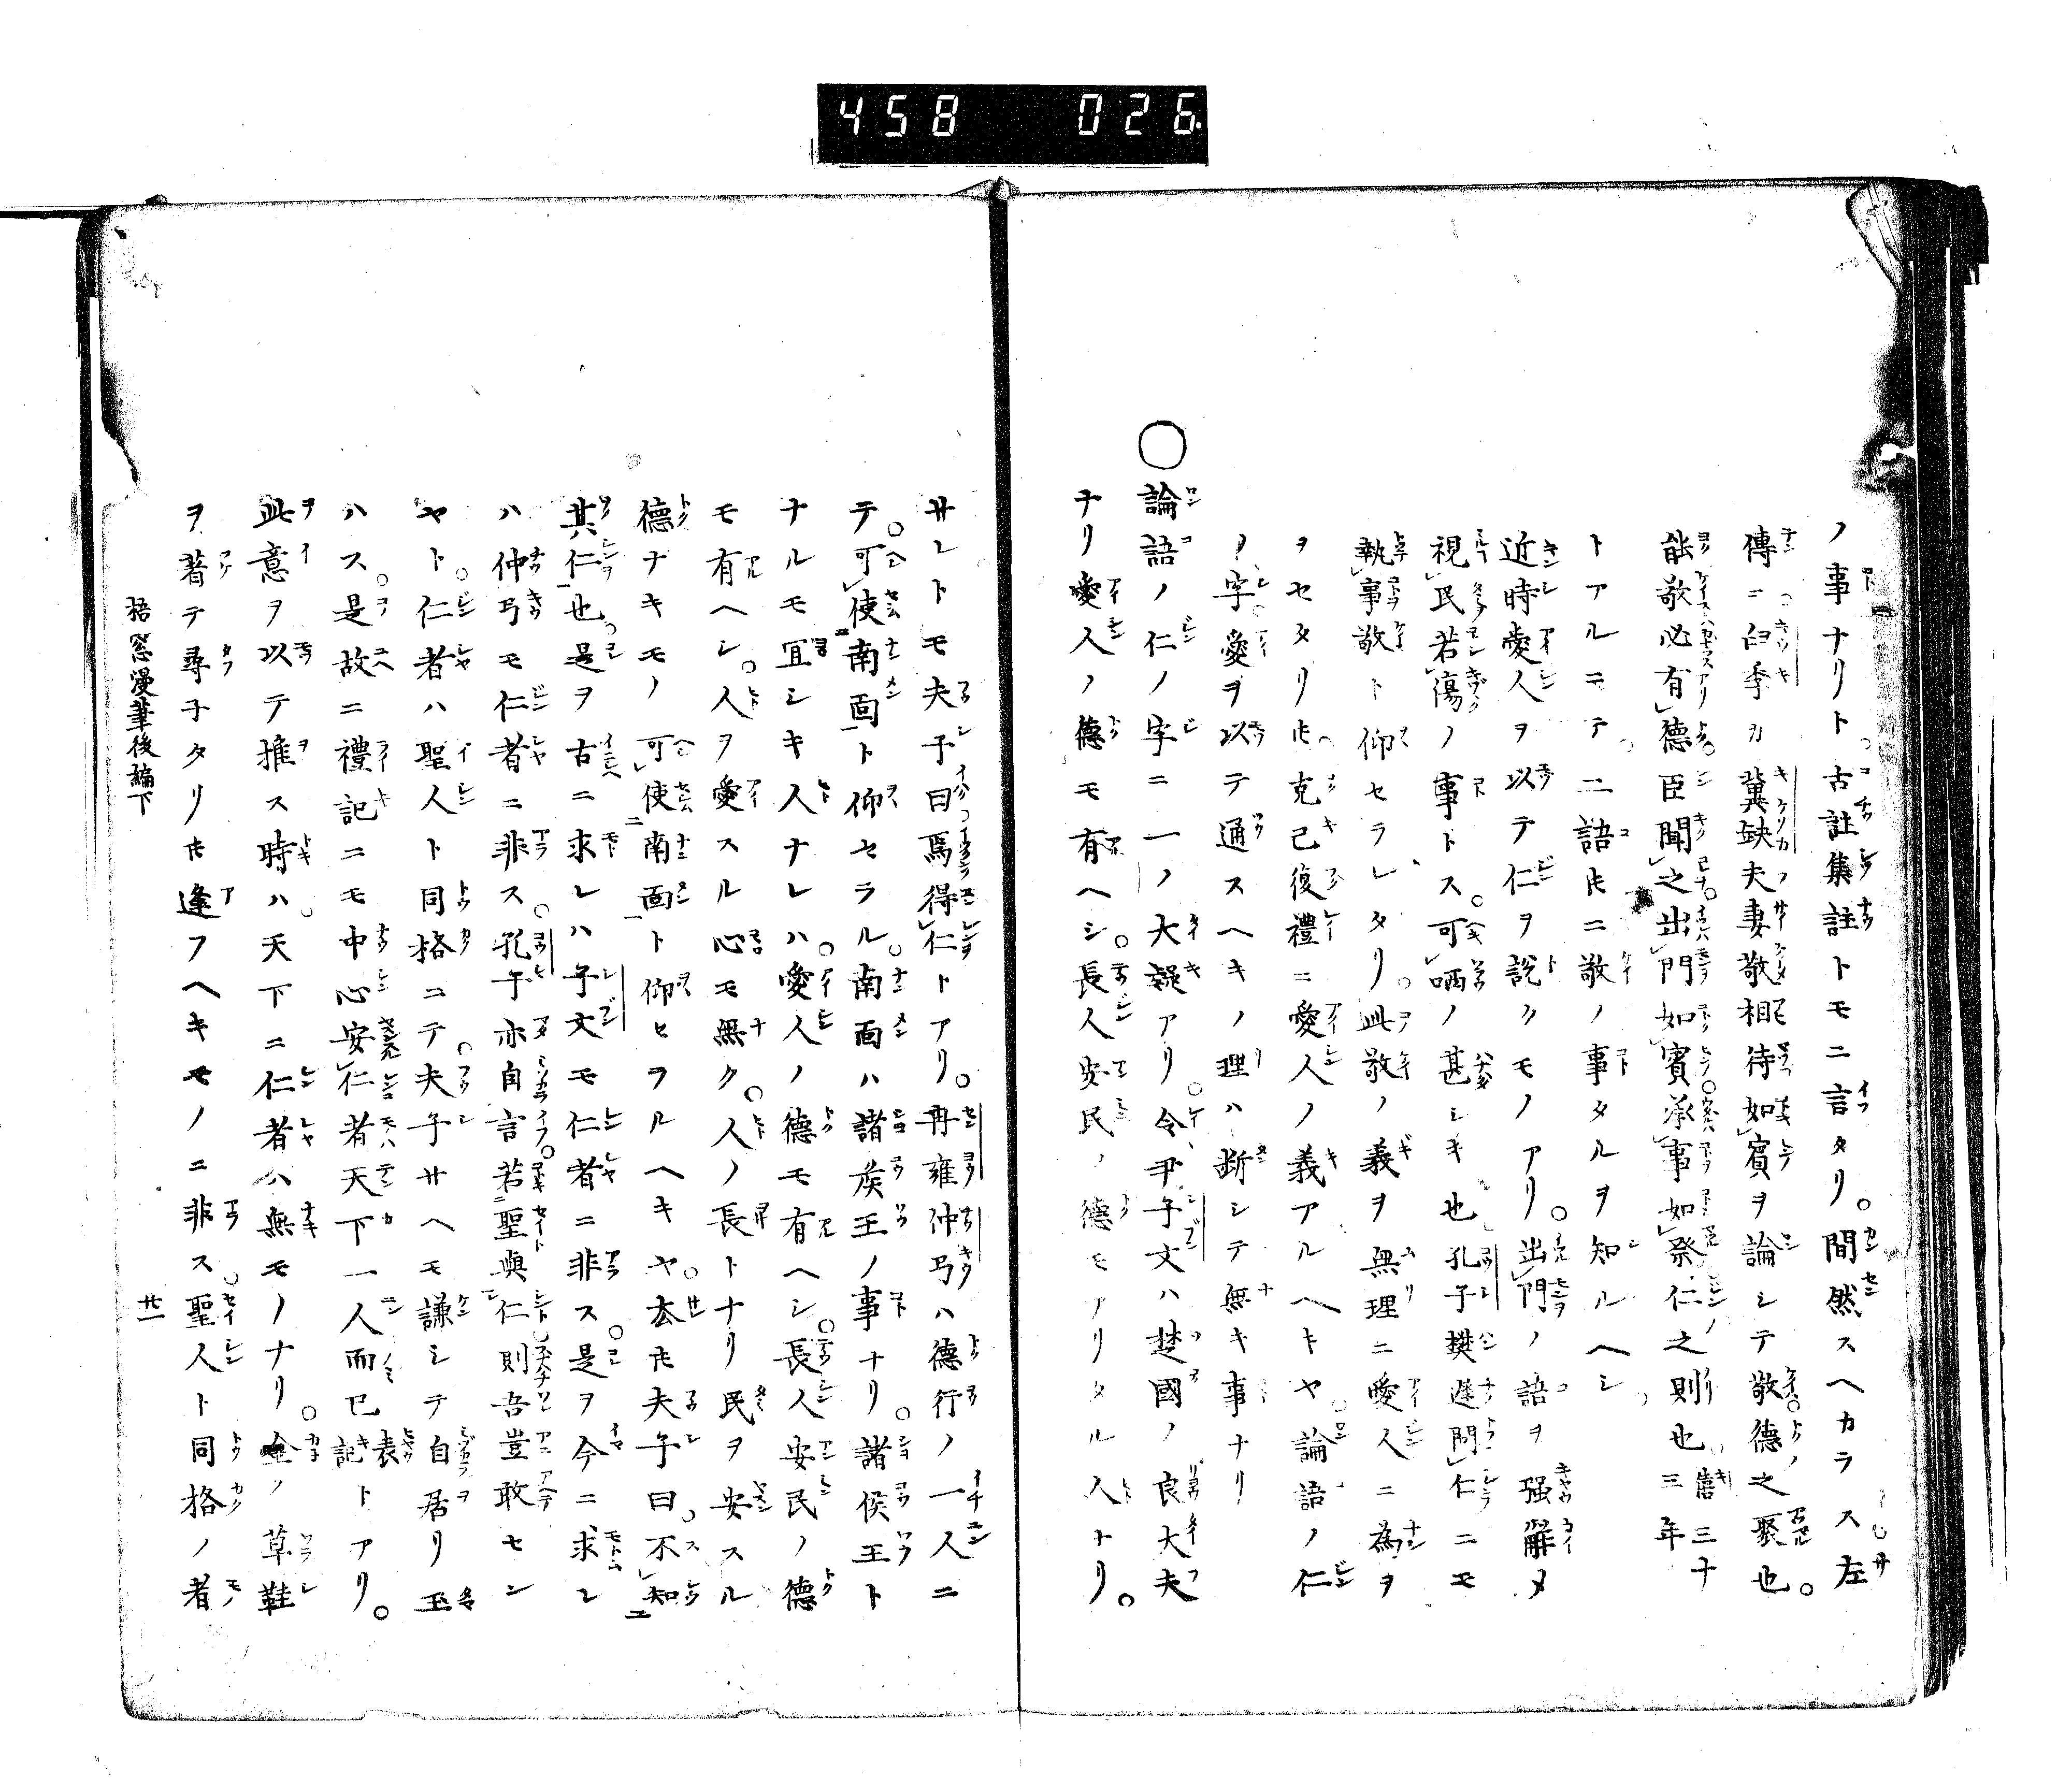 458 026
ノ事ナリト。古註集註トモニ言タリ。間然スヘカラス。左
傳ニ。臼季カ冀缺夫妻敬相待如賓ヲ論シテ敬德之聚也。
能敬必有德。臣聞之出門如賓。承事如祭。仁之則也。僖三十三年
トアルニテ。二語ᅶニ敬ノ事タルヲ知ルヘシ。
近時愛人ヲ以テ仁ヲ說クモノアリ。出門ノ語ヲ强解メ
視民若傷ノ事トス。可哂ノ甚シキ也。孔子樊遲問仁ニモ
執事敬ト仰セラレタリ。此敬ノ義ヲ無理ニ愛人ニ為ヲ
ヲセタリトモ。克己復禮ニ愛人ノ義アルヘキヤ。論語ノ仁
ノ字。愛ヲ以テ通スヘキノ理ハ斷シテ無キ事ナリ
○論語ノ仁ノ字ニ一ノ大疑アリ。令尹子文ハ楚國ノ良大夫
ナリ愛人ノ德モ有ヘシ。長人安民ノ德モアリタル人ナリ。
サレトモ夫子曰焉得仁トアリ。冉雍仲弓ハ德行ノ一人ニ
テ。可使南面ト仰セラル。南面ハ諸侯王ノ事ナリ。諸侯王ト
ナルモ宜シキ人ナレハ。愛人ノ德モ有ヘシ。長人安民ノ德
モ有ヘシ。人ヲ愛スル心モ無ク。人ノ長トナリ民ヲ安スル
德ナキモノ。可使南面ト仰セヲルヘキヤ。去トモ夫子曰。不知
其仁也。是ヲ古ニ求レハ子文モ仁者ニ非ス。是ヲ今ニ求レ
ハ仲弓モ仁者ニ非ス。孔子亦自言。若聖與仁則吾豈敢セン
ヤト。仁者ハ聖人ト同格ニテ。夫子サヘモ謙シテ自居リ玉
ハス。是故ニ禮記ニモ中心安仁者天下一人而已表記トアリ。
此意ヲ以テ推ス時ハ。天下ニ仁者ハ無モノナリ。金ノ草鞋
ヲ著テ尋子タリトモ逢フヘキモノニ非ス。聖人ト同格ノ者
梧窓漫筆後編下
廿一